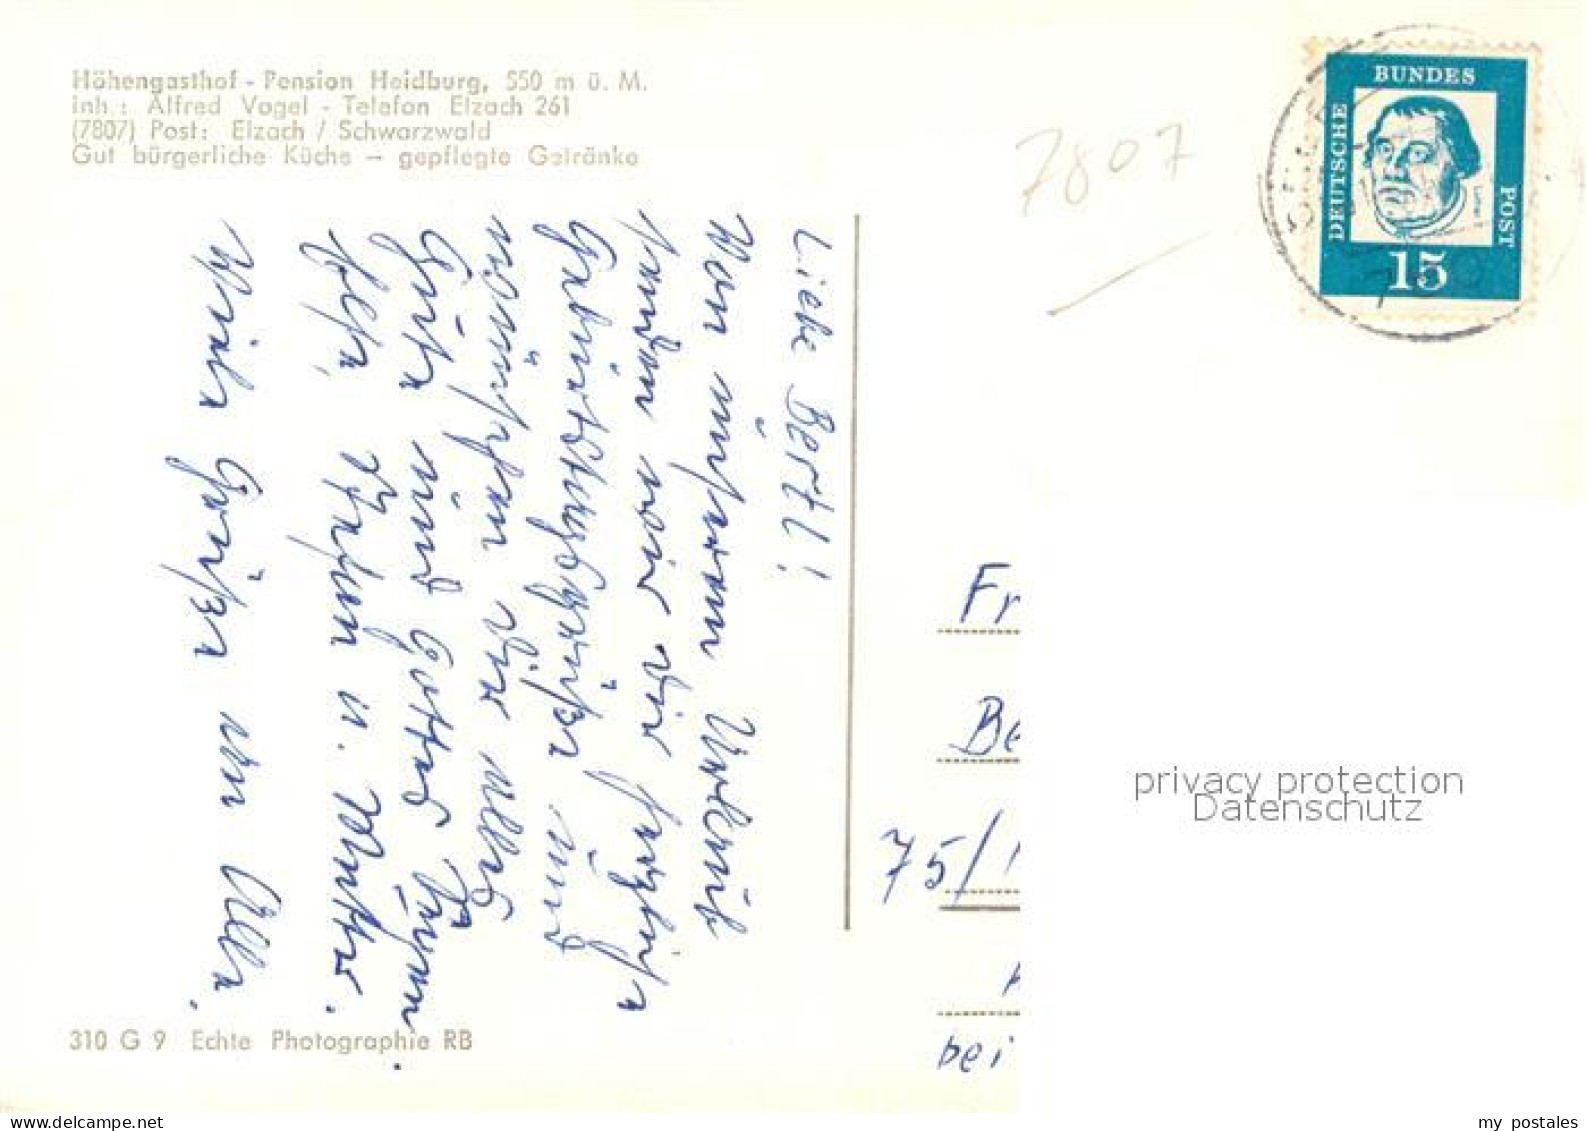 Höhengasthof - Pension Heidburg, 550 m ü. M.
Inh.: Alfred Vogel - Telefon Elzach 261
(7807) Post: Elzach / Schwarzwald
Gut bürgerliche Küche – gepflegte Getränke
7807
BUNDES
DEUTSCHE
POST
Luther
15
Liebe Bertl!
Von unserem Urlaub
senden wir dir herzliche
Geburtstagsgrüße und
wünschen dir alles
Gute und Gottes Segen.
Helga, u. Mutter.
Viele Grüße an Alle.
Fr
Be
75/1
bei
privacy protection
Datenschutz
310 G 9 Echte Photographie RB
www.delcampe.net
my_postales